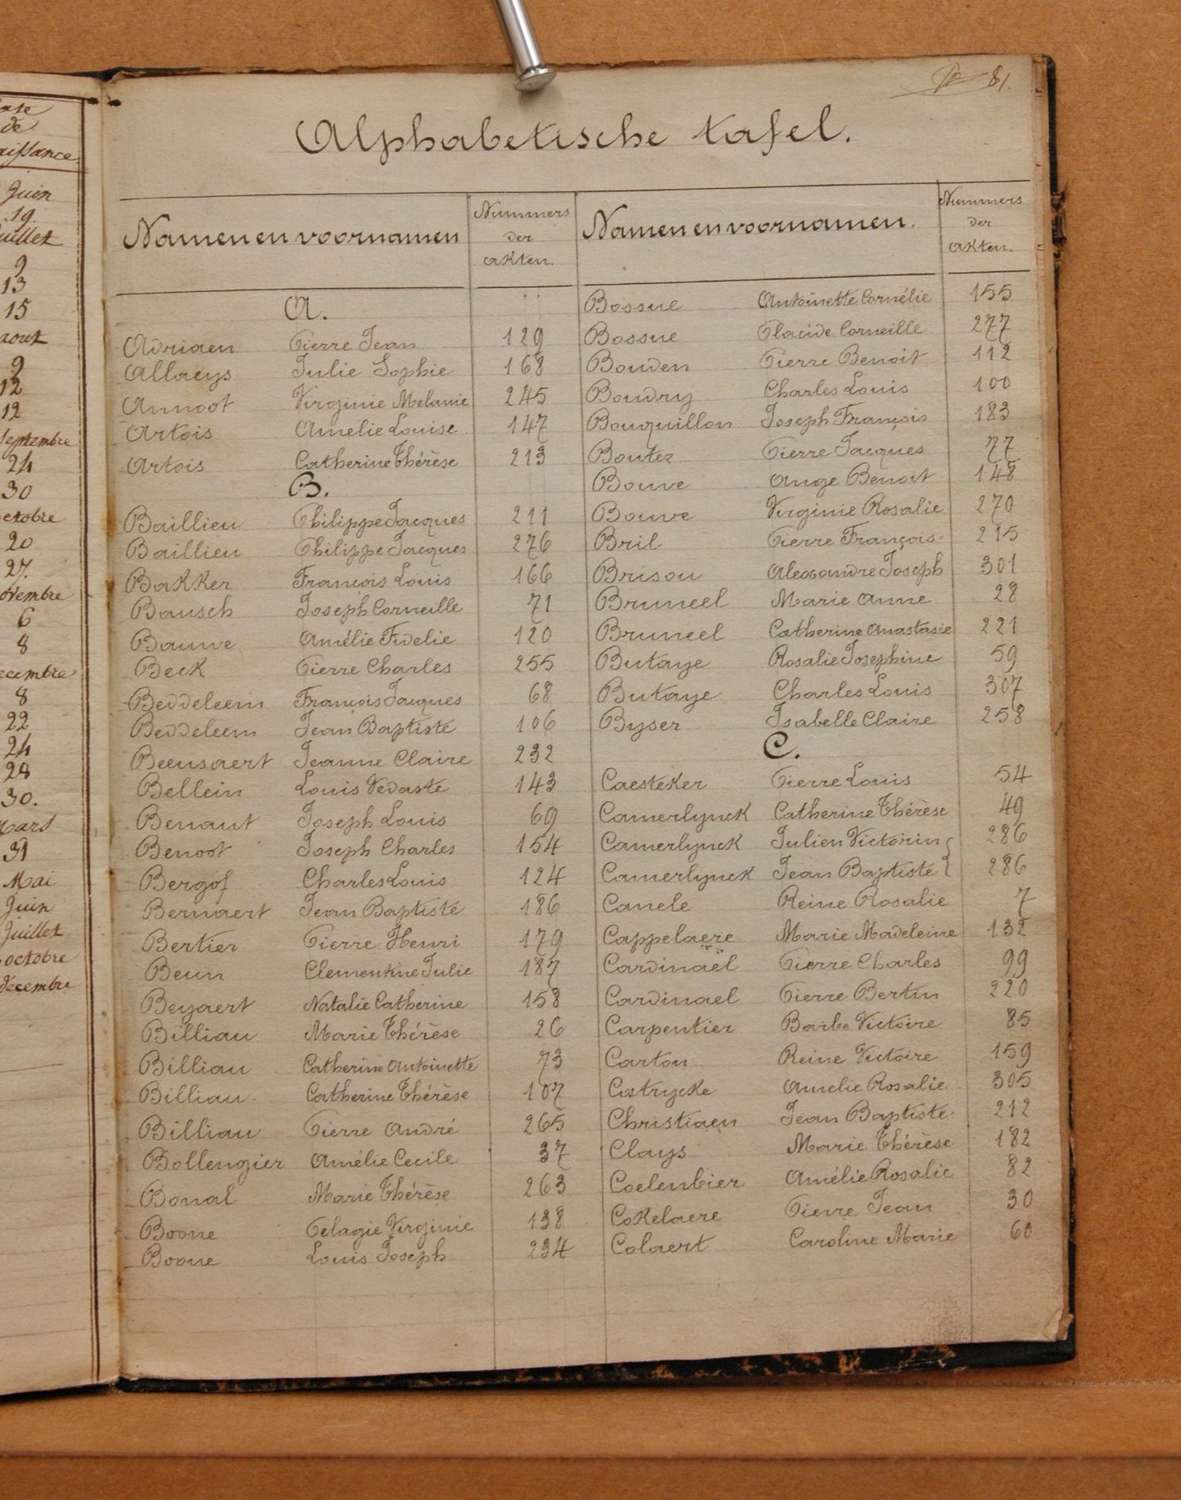 Date
de
naissance
Juin
19.
Juillet
9
13
15
aout
9
12
12
Septembre
24
30
octobre
20
27.
Novembre
6
8
Decembre
8
22
24
28
30.
Mars
31
Mai
Juin
Juillet
octobre
decembre
81.
Alphabetische tafel.
Namen en voornamen
Nummers
der
akten.
A.
Adriaen Pierre Jean 129
Allaeys Julie Sophie 168
Annoot Virginie Melanie 245
Artois Amelie Louise 147
Artois Catherine Thérèse 213
B.
Baillieu Philippe Jacques 211
Baillieu Philippe Jacques 276
Bakker François Louis 166
Bausch Joseph Corneille 71
Bauwe Amélie Fidelie 120
Beck Pierre Charles 255
Beddeleem François Jacques 68
Beddeleem Jean Baptiste 106
Beensaert Jeanne Claire 232
Bellein Louis Vedaste 143
Benaut Joseph Louis 69
Benoot Joseph Charles 154
Bergof Charles Louis 124
Bernaert Jean Baptiste 186
Bertier Pierre Henri 179
Beun Clementine Julie 187
Beyaert Natalie Catherine 158
Billiau Marie Thérèse 26
Billiau Catherine Antoinette 73
Billiau Catherine Thérèse 107
Billiau Pierre André 265
Bollengier Amélie Cecile 37
Bonal Marie Thérèse 263
Boone Pelagie Virginie 138
Boone Louis Joseph 234
Namen en voornamen.
Nummers
der
akten.
Bossue Antoinette Cornélie 155
Bossue Placide Corneille 277
Bouden Pierre Benoit 112
Boudry Charles Louis 100
Bouquillon Joseph François 183
Boutez Pierre Jacques 77
Bouve Ange Benoit 148
Bouve Virginie Rosalie 270
Bril Pierre François 215
Brisou Alexandre Joseph 301
Bruneel Marie Anne 28
Bruneel Catherine Anastasie 221
Butaye Rosalie Josephine 59
Butaye Charles Louis 307
Byser Isabelle Claire 258
C.
Caesteker Pierre Louis 54
Camerlynck Catherine Thérèse 49
Camerlynck Julien Victorin 286
Camerlynck Jean Baptiste 286
Canele Reine Rosalie 7
Cappelaere Marie Madeleine 132
Cardinaël Pierre Charles 99
Cardinael Pierre Bertin 220
Carpentier Barbe Victoire 85
Carton Reine Victoire 159
Catrycke Amelie Rosalie 305
Christiaen Jean Baptiste 212
Clays Marie Thérèse 182
Coelenbier Amélie Rosalie 82
Cokelaere Pierre Jean 30
Colaert Caroline Marie 60